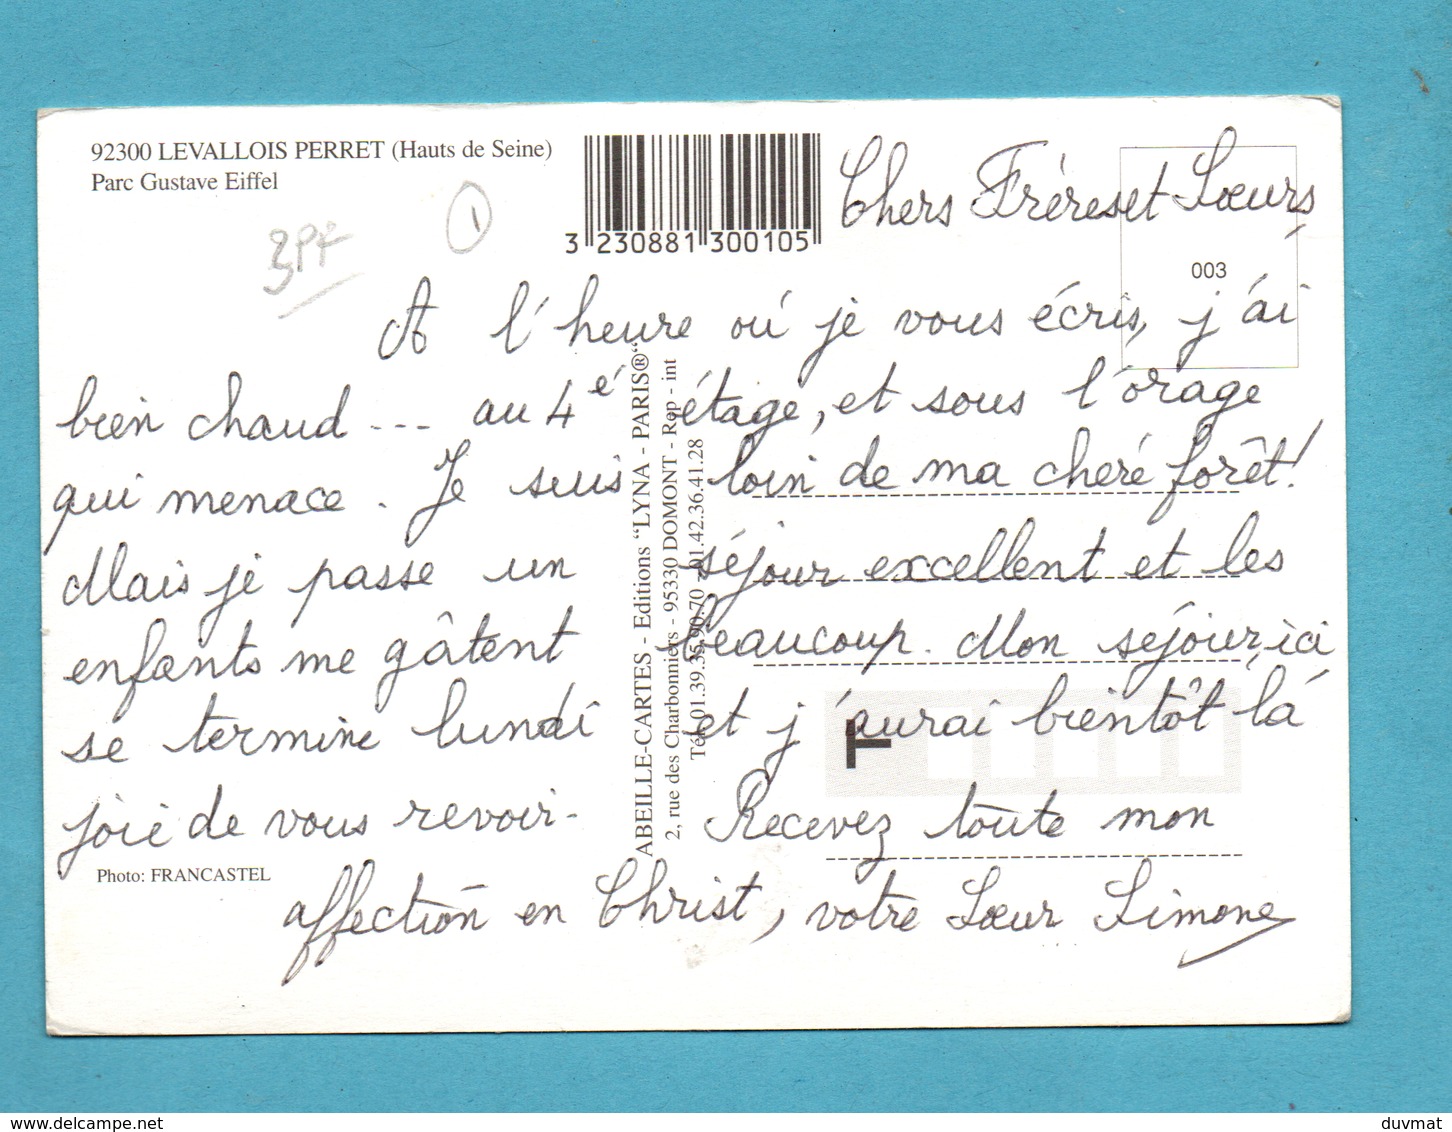 92300 LEVALLOIS PERRET (Hauts de Seine)
Parc Gustave Eiffel
3 230881 300105
003
1
Chers Frères et Sœurs,
A l'heure où je vous écris, j'ai
bien chaud ... au 4e étage, et sous l'orage
qui menace. Je suis loin de ma chère forêt!
Mais je passe un séjour excellent et les
enfants me gâtent beaucoup. Mon séjour, ici
se termine lundi et j'aurai bientôt la
joie de vous revoir. Recevez toute mon
affection en Christ, votre Sœur Simone
T
Photo: FRANCASTEL
ABEILLE-CARTES - Editions "LYNA - PARIS®"
2, rue des Charbonniers - 95330 DOMONT - Rep - int
Tél. 01.39.35.90.70 - 01.42.36.41.28
delcampe.net
duvmat